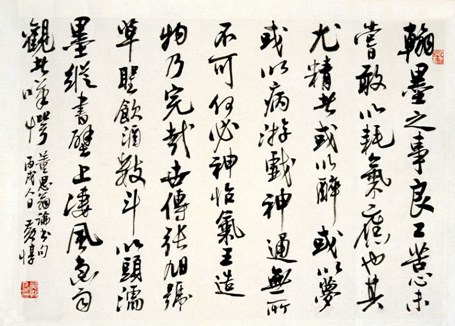 翰墨之事良工苦心未
嘗敢以耗氣應也其
尤精者或以醉或以夢
或以病游戲神通無所
不可何必神怡氣王造
物乃完哉世傳張旭號
草聖飲酒數斗以頭濡
墨縱書壁上淒風急雨
觀者嘆愕
董思翁論書句
丙戌